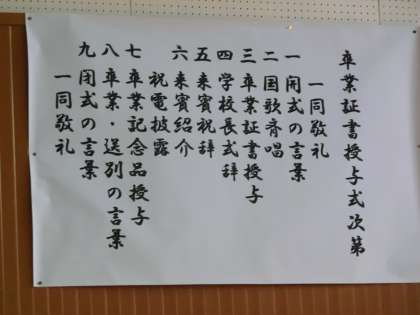 卒業証書授与式次第
一同敬礼
一開式の言葉
二国歌斉唱
三卒業証書授与
四学校長式辞
五来賓祝辞
六来賓紹介
祝電披露
七卒業記念品授与
八卒業・送別の言葉
九閉式の言葉
一同敬礼